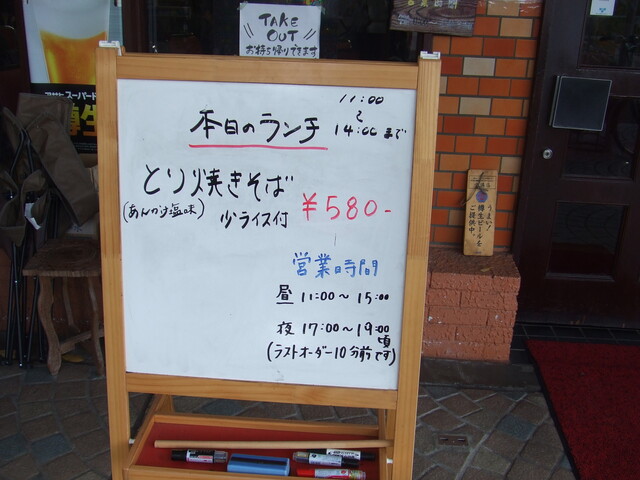 TAKE OUT
お持ち帰りできます
本日のランチ
11:00
〜
14:00まで
とり焼きそば
(あんかけ塩味)
少ライス付 ¥580-
営業時間
昼 11:00〜15:00
夜 17:00〜19:00頃
(ラストオーダー10分前です)
うまい!
樽生ビールを
ご提供中。